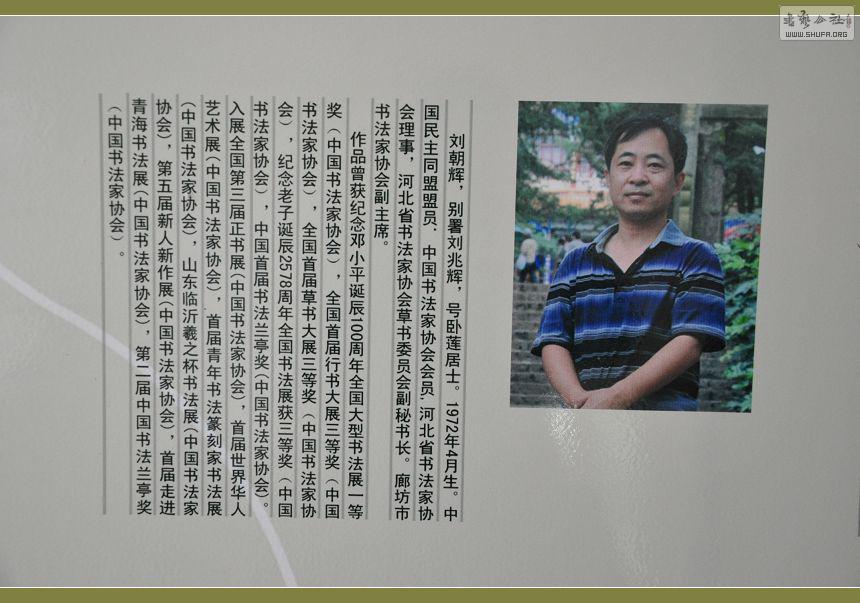 刘朝辉，别署刘兆辉，号卧莲居士。1972年4月生。中
国民主同盟盟员、中国书法家协会会员，河北省书法家协
会理事，河北省书法家协会草书委员会副秘书长。廊坊市
书法家协会副主席。
作品曾获纪念邓小平诞辰100周年全国大型书法展一等
奖（中国书法家协会），全国首届行书大展三等奖（中国
书法家协会），全国首届草书大展三等奖（中国书法家协
会），纪念老子诞辰2578周年全国书法展获三等奖（中国
书法家协会），中国首届书法兰亭奖（中国书法家协会）。
入展全国第三届正书展（中国书法家协会），首届世界华人
艺术展（中国书法家协会），首届青年书法篆刻家书法展
（中国书法家协会），山东临沂羲之杯书法展（中国书法家
协会），第五届新人新作展（中国书法家协会），首届走进
青海书法展（中国书法家协会），第二届中国书法兰亭奖
（中国书法家协会）。
书艺公社
WWW.SHUFA.ORG